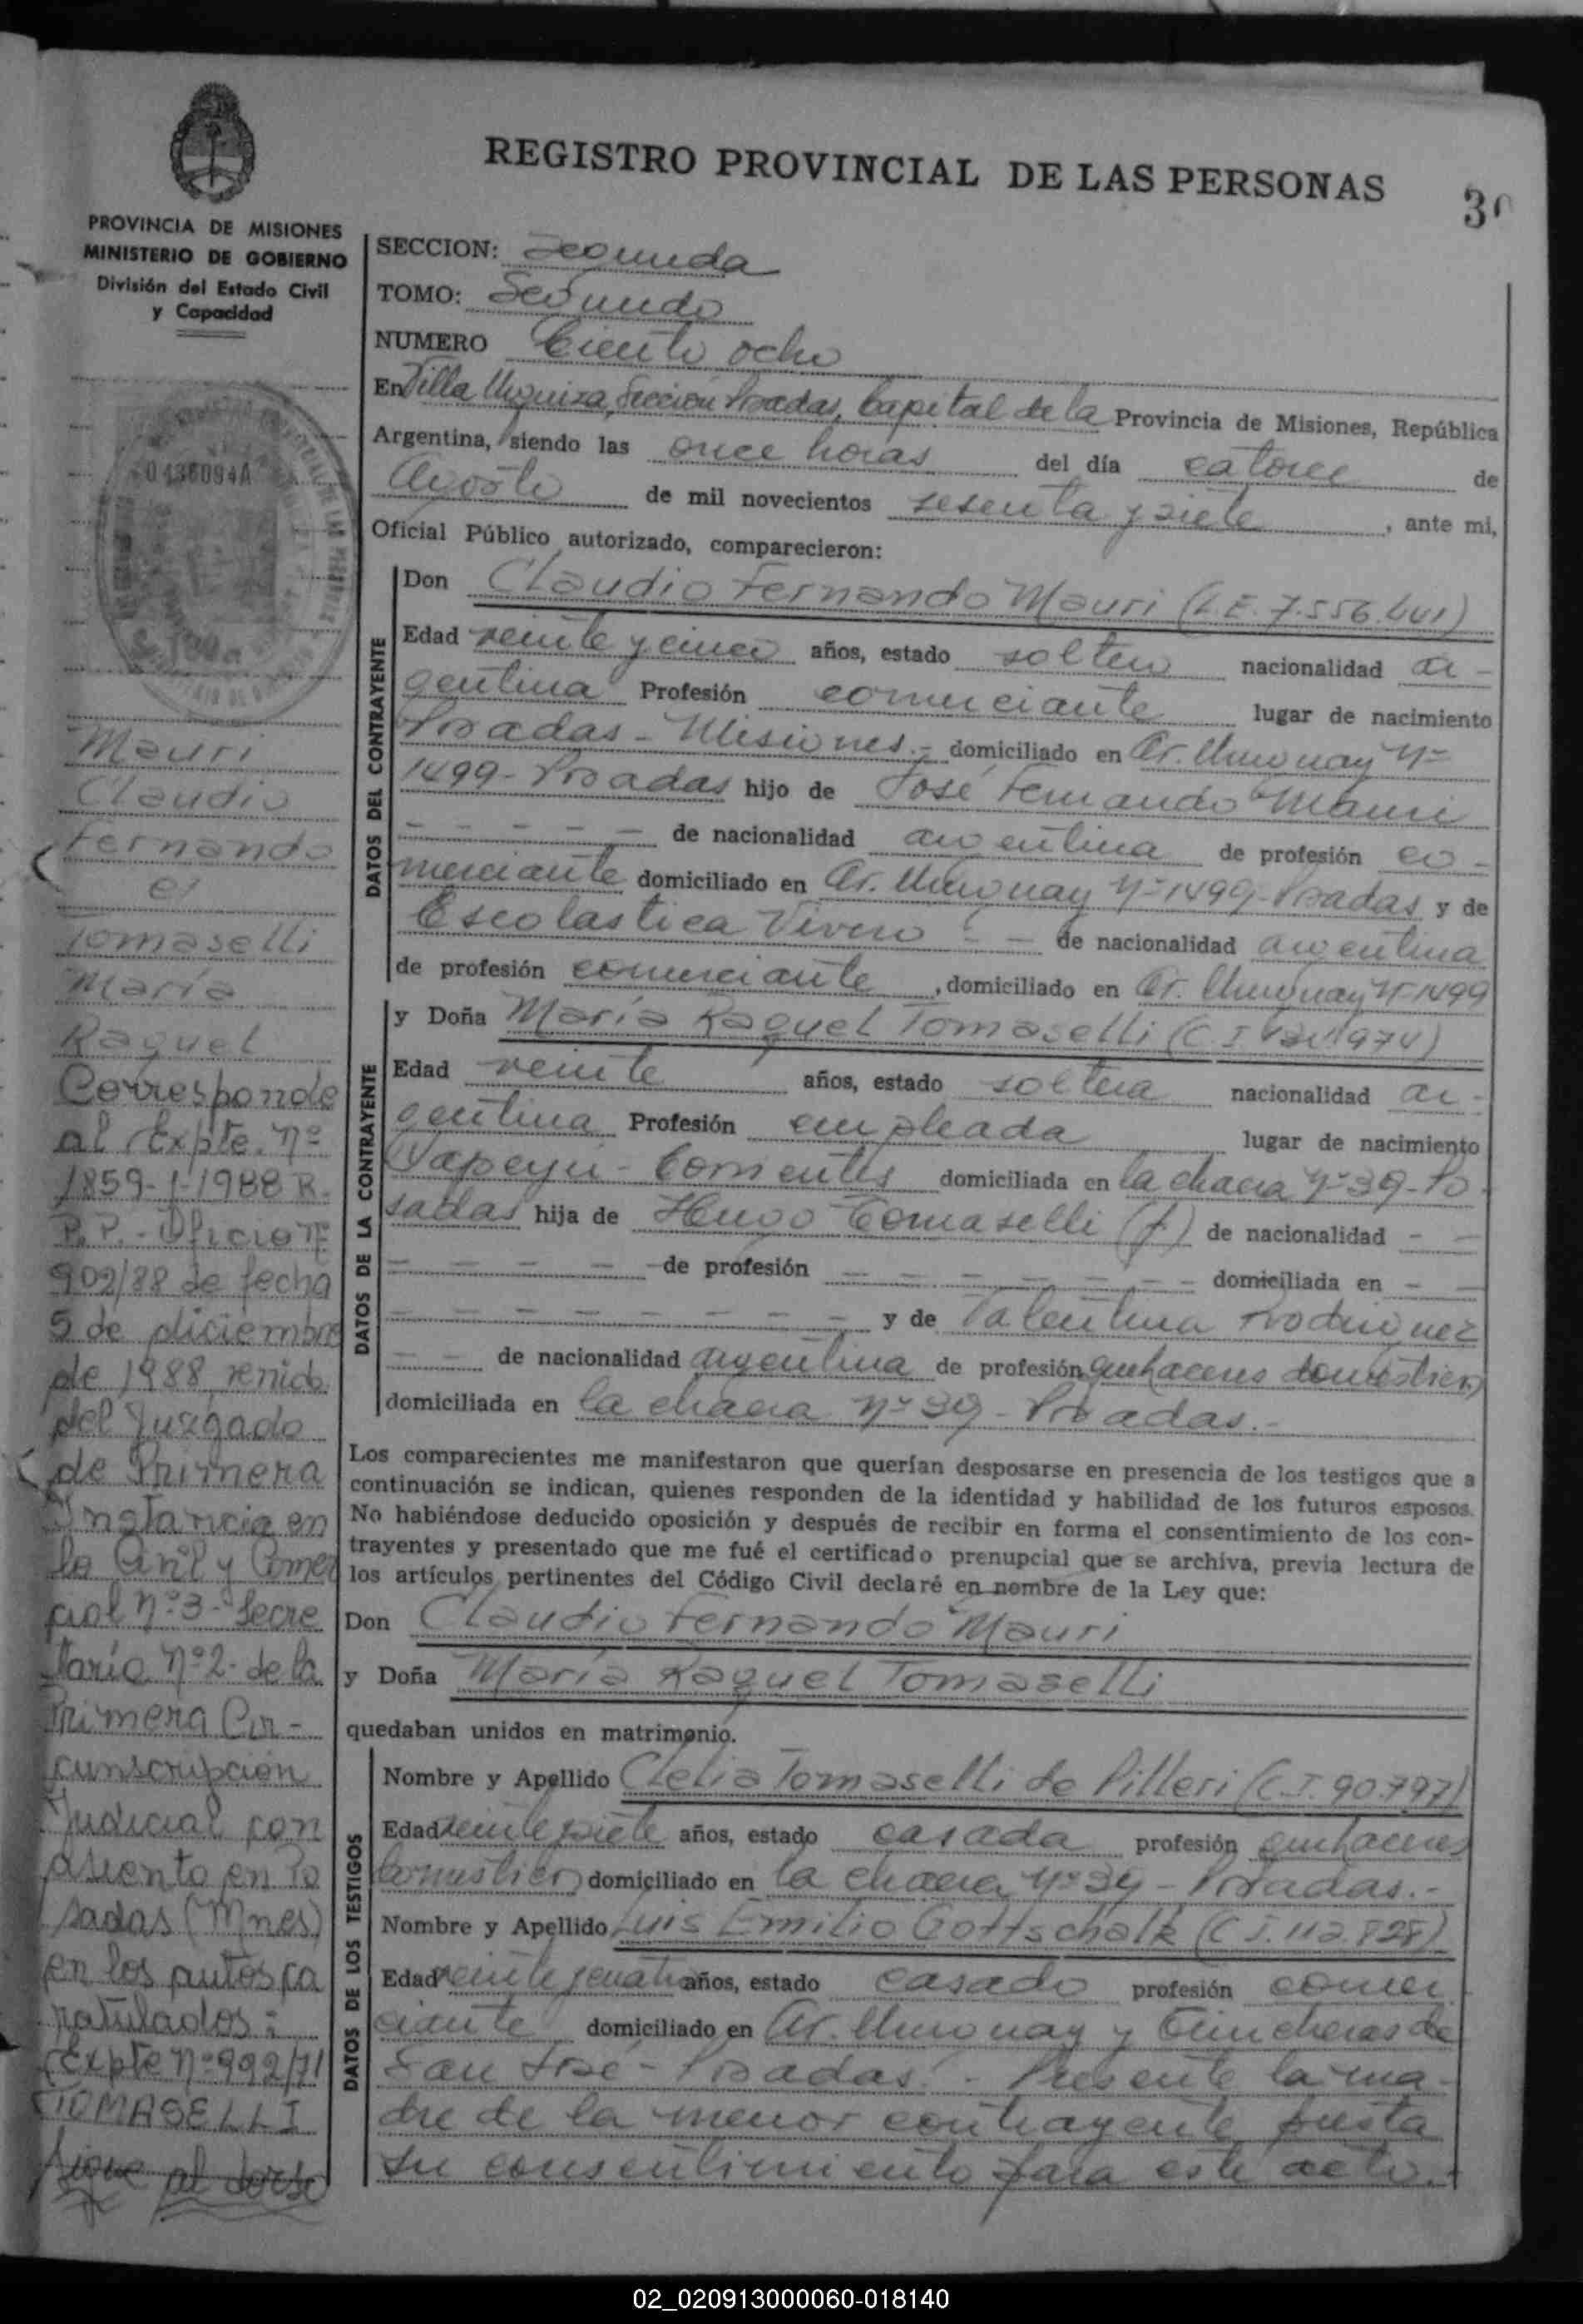 REGISTRO PROVINCIAL DE LAS PERSONAS
PROVINCIA DE MISIONES
MINISTERIO DE GOBIERNO
División del Estado Civil
y Capacidad
0436094A
Mauri
Claudio
Fernando
y
Tomaselli
María
Raquel
Corresponde
al Expte. nº
1859-1-1988 R.
P.P. - Oficio nº
902/88 de fecha
5 de diciembre
de 1988 venido
del Juzgado
de Primera
Instancia en
lo Civil y Comer
cial Nº 3 - Secre
taría Nº 2 - de la
Primera Cir-
cunscripción
Judicial con
asiento en Po
sadas (Mnes)
en los autos ca
ratulados:
Expte nº 992/71
TOMASELLI
Sigue al dorso
SECCION: Segunda
TOMO: Segundo
NUMERO Ciento ocho
En Villa Urquiza, Sección Posadas, Capital de la Provincia de Misiones, República
Argentina, siendo las once horas del día catorce de
Agosto de mil novecientos sesenta y siete, ante mi,
Oficial Público autorizado, comparecieron:
DATOS DEL CONTRAYENTE
Don Claudio Fernando Mauri (L.E. 7.556.441)
Edad veinte y cinco años, estado soltero nacionalidad ar-
gentina Profesión comerciante lugar de nacimiento
Posadas - Misiones.- domiciliado en Av. Uruguay Nº
1499 - Posadas hijo de José Fernando Mauri
- - - - - de nacionalidad argentina de profesión co-
merciante domiciliado en Av. Uruguay Nº 1499 - Posadas y de
Escolastica Vivero - - de nacionalidad argentina
de profesión comerciante, domiciliado en Av. Uruguay Nº 1499
DATOS DE LA CONTRAYENTE
y Doña María Raquel Tomaselli (C.I. 974)
Edad veinte años, estado soltera nacionalidad ar-
gentina Profesión empleada lugar de nacimiento
Yapeyú - Corrientes domiciliada en la chacra Nº 39 - Po
sadas hija de Hugo Tomaselli (f) de nacionalidad - -
- - - - - de profesión - - - - - - domiciliada en - -
- - - - - - - - - y de Valentina Rodriguez
- - de nacionalidad argentina de profesión quehaceres domésticos
domiciliada en la chacra Nº 39 - Posadas.-
Los comparecientes me manifestaron que querían desposarse en presencia de los testigos que a
continuación se indican, quienes responden de la identidad y habilidad de los futuros esposos.
No habiéndose deducido oposición y después de recibir en forma el consentimiento de los con-
trayentes y presentado que me fué el certificado prenupcial que se archiva, previa lectura de
los artículos pertinentes del Código Civil declaré en nombre de la Ley que:
Don Claudio Fernando Mauri
y Doña María Raquel Tomaselli
quedaban unidos en matrimonio.
DATOS DE LOS TESTIGOS
Nombre y Apellido Clelia Tomaselli de Pilleri (C.I. 90.797)
Edad veinte y siete años, estado casada profesión quehaceres
domésticos domiciliado en la chacra Nº 39 - Posadas.-
Nombre y Apellido Luis Emilio Gottschalk (C.I. 112.828)
Edad veinte y cuatro años, estado casado profesión comer
ciante domiciliado en Av. Uruguay y Trincheras de
San José - Posadas.- Presente la ma-
dre de la menor contrayente presta
su consentimiento para este acto.-
02_020913000060-018140